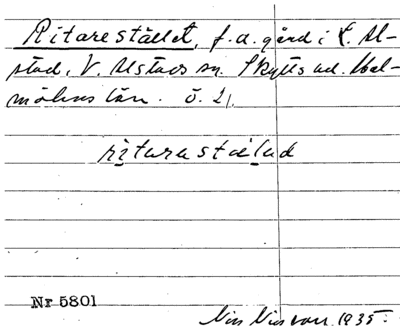 Ritarestället, f.d. gård i V. Al-
stad, V. Alstads sn. Skytts hd. Mal-
möhus län. ö. 21.
ritarastälad
Nr 5801
Nils Nilsson 1935.